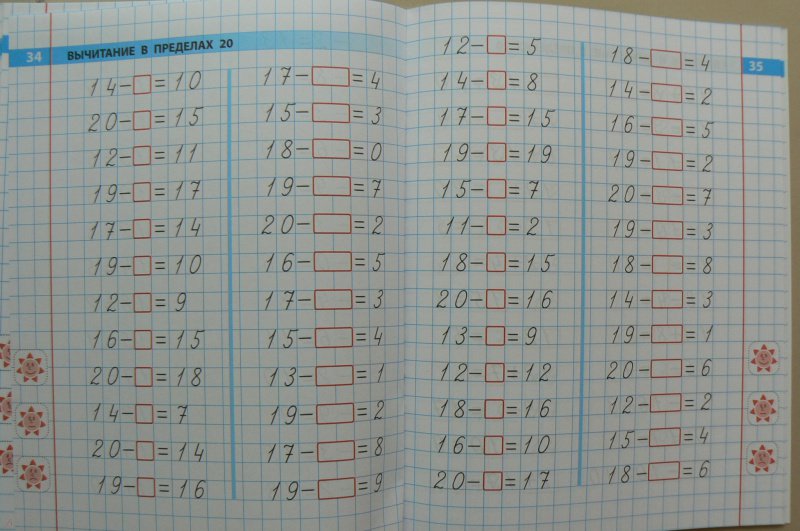 34
ВЫЧИТАНИЕ В ПРЕДЕЛАХ 20
14-□=10
20-□=15
12-□=11
19-□=17
17-□=14
19-□=10
12-□=9
16-□=15
20-□=18
14-□=7
20-□=14
19-□=16
17-□=4
15-□=3
18-□=0
19-□=7
20-□=2
16-□=5
17-□=3
15-□=4
13-□=1
19-□=2
17-□=8
19-□=9
35
12-□=5
14-□=8
17-□=15
19-□=19
15-□=7
11-□=2
18-□=15
20-□=16
13-□=9
12-□=12
18-□=16
16-□=10
20-□=17
18-□=4
14-□=2
16-□=5
19-□=2
20-□=7
19-□=3
18-□=8
14-□=3
19-□=1
20-□=6
12-□=2
15-□=4
18-□=6